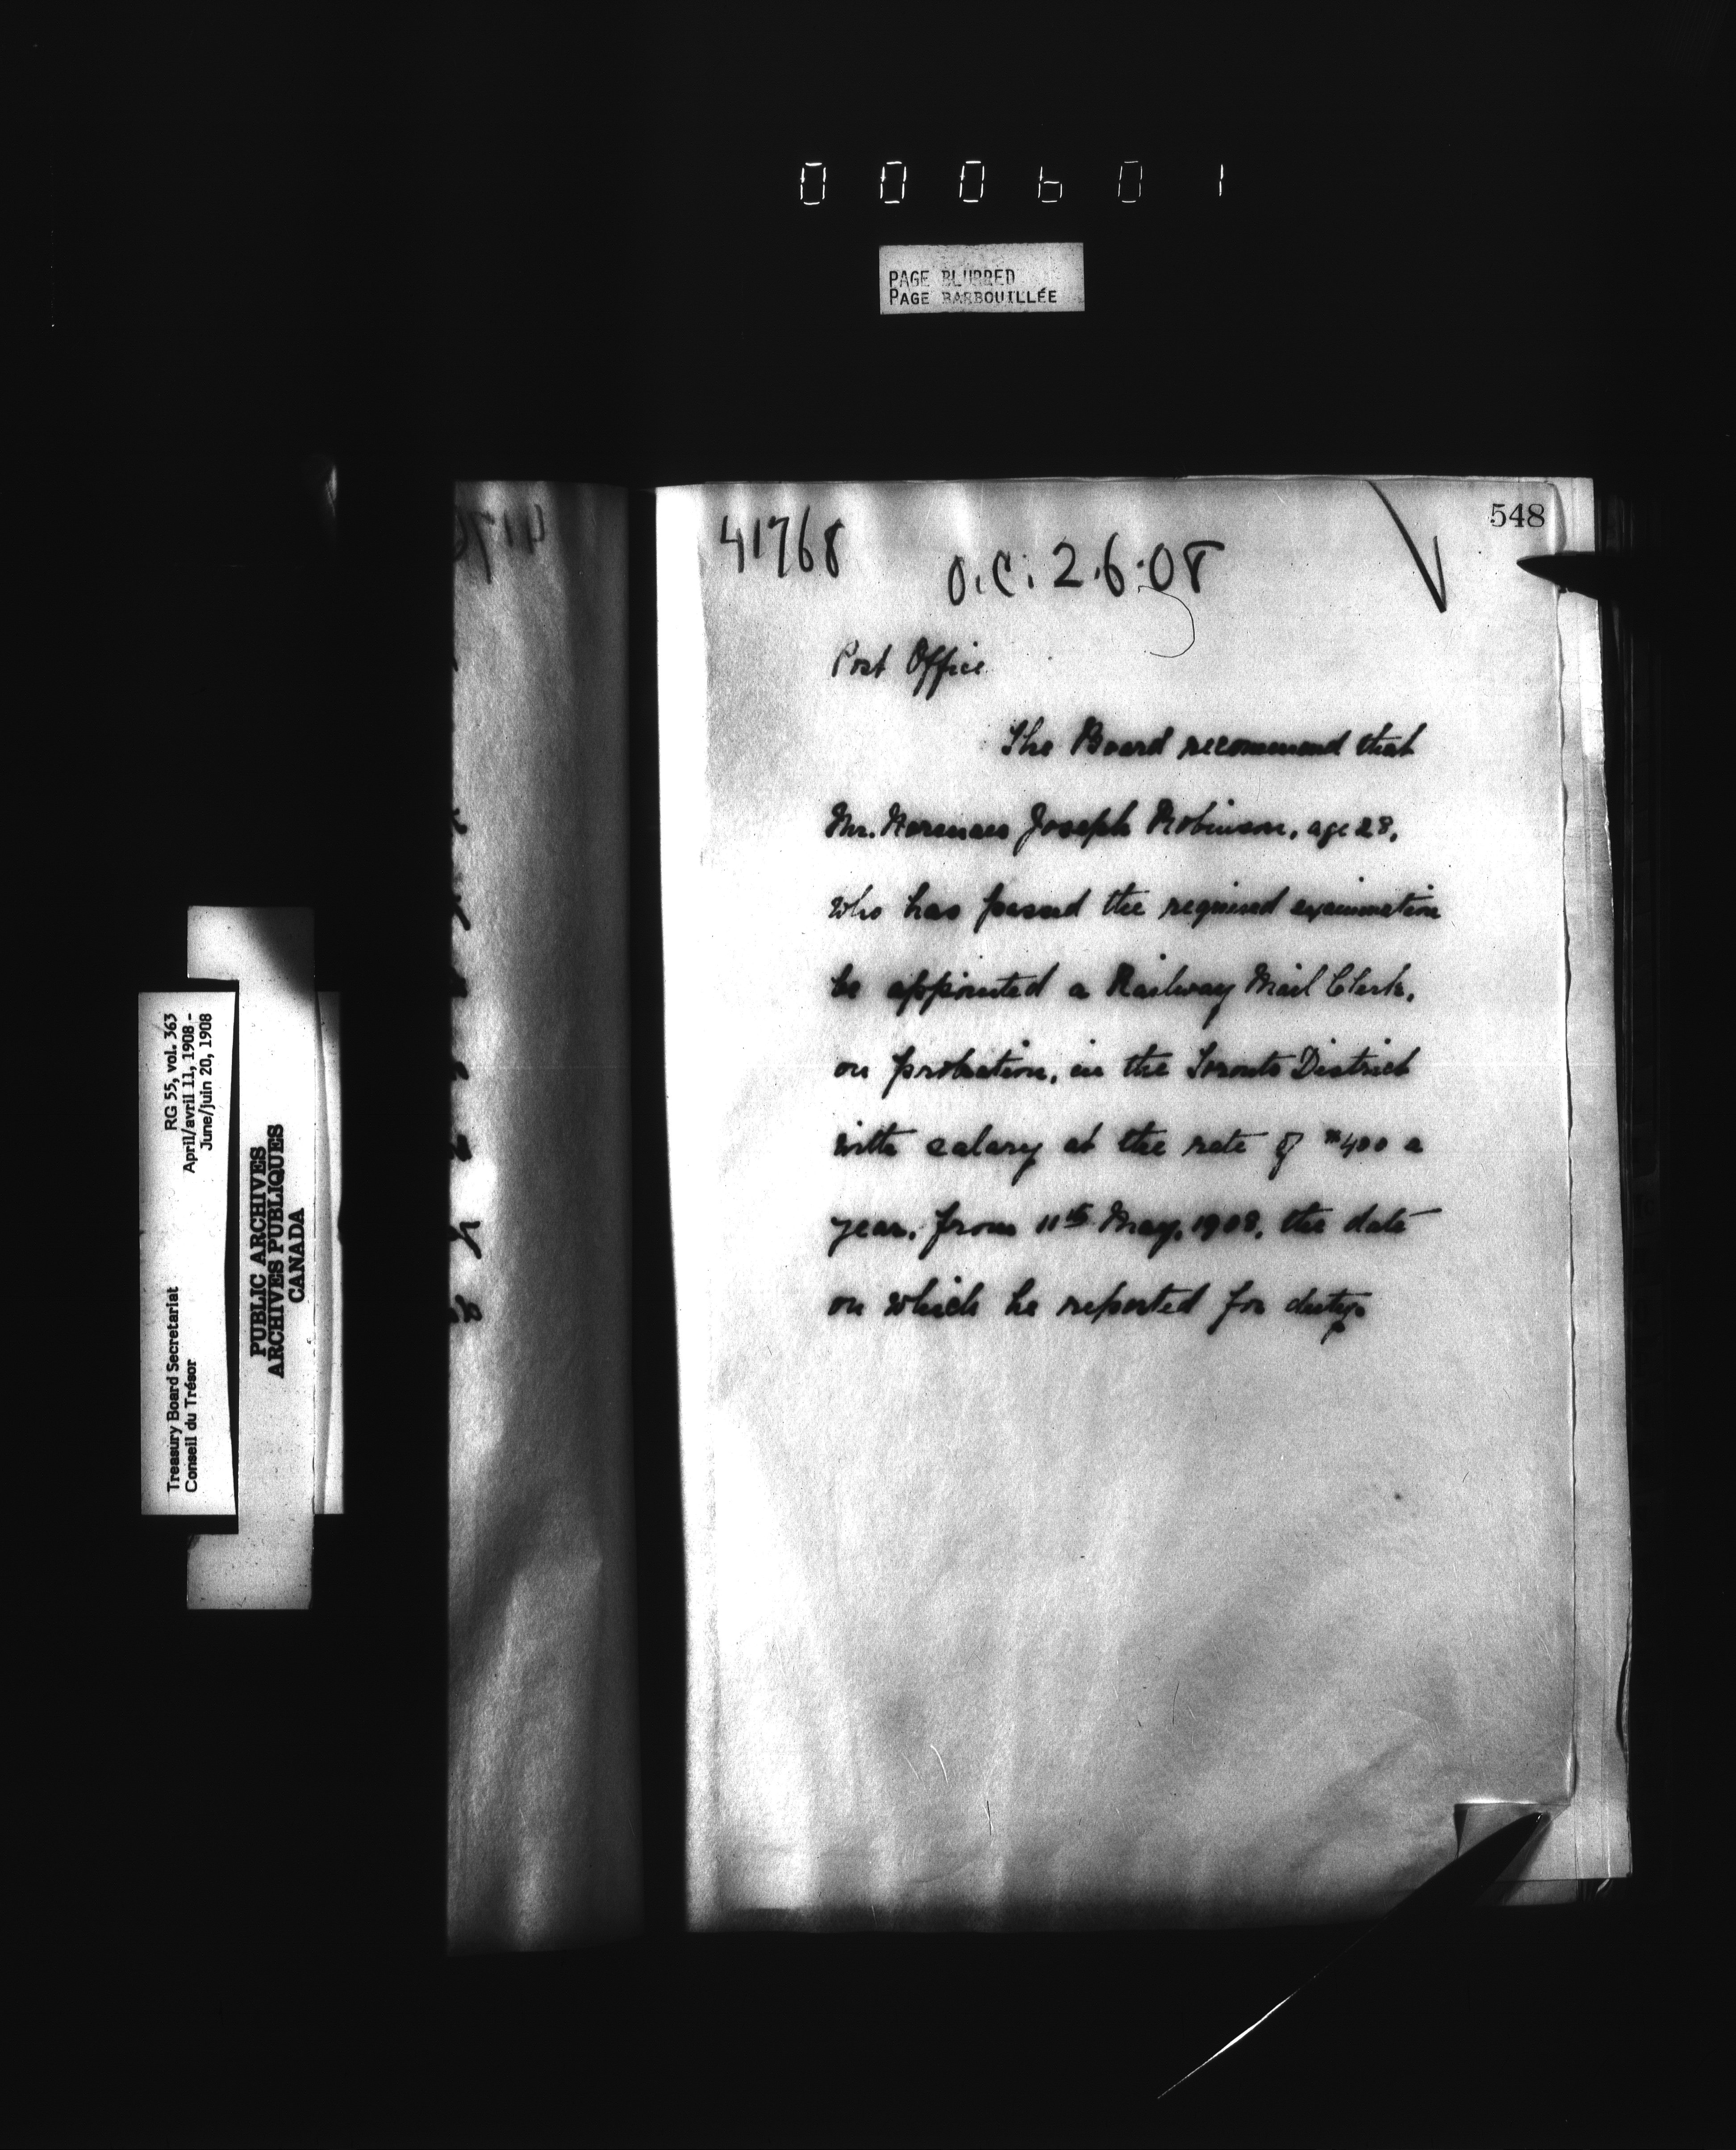 000601
PAGE BLURRED
PAGE BARBOUILLÉE
548
41768
O.C. 2.6.08
Post Office
The Board recommend that
Mr. Norman Joseph Robinson, age 28,
who has passed the required examination
be appointed a Railway Mail Clerk,
on probation, in the Toronto District
with salary at the rate of $400 a
year, from 11th May, 1908, the date
on which he reported for duty.
RG 55, vol. 363
April/avril 11, 1908 -
June/juin 20, 1908
Treasury Board Secretariat
Conseil du Trésor
PUBLIC ARCHIVES
ARCHIVES PUBLIQUES
CANADA